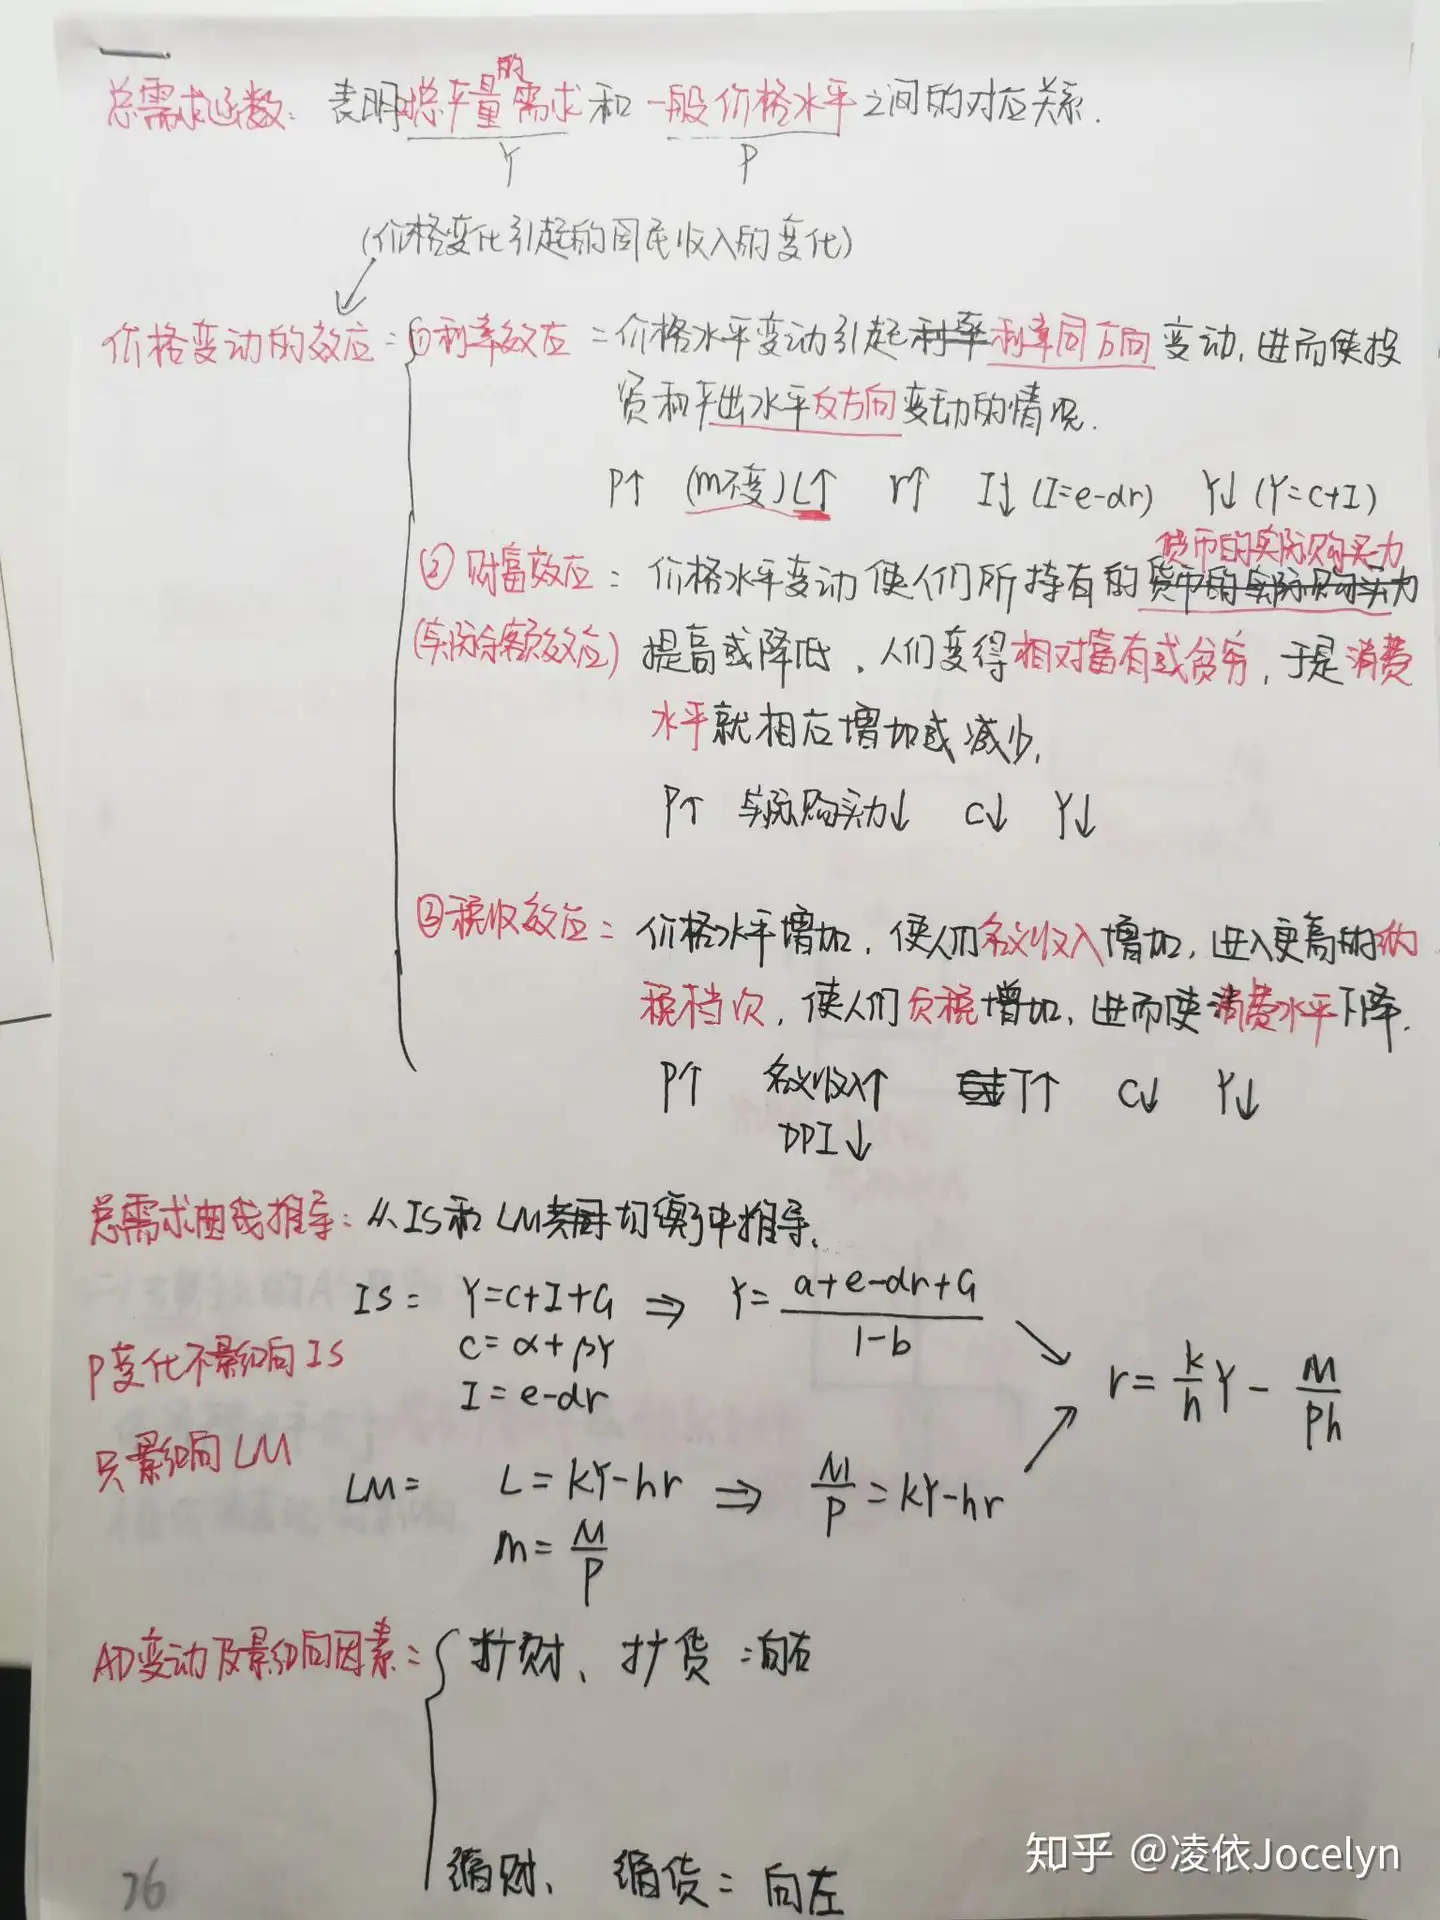 总需求函数: 表明总产量的需求和一般价格水平之间的对应关系.
Y P
(价格变化引起的国民收入的变化)
价格变动的效应: ①利率效应 = 价格水平变动引起利率利率同方向变动, 进而使投
资和产出水平反方向变动的情况.
P↑ (m不变)L↑ r↑ I↓ (I=e-dr) Y↓ (Y=C+I)
货币的实际购买力
②财富效应: 价格水平变动使人们所持有的货币的实际购买力
(实际余额效应) 提高或降低, 人们变得相对富有或贫穷, 于是消费
水平就相应增加或减少.
P↑ 实际购买力↓ C↓ Y↓
③税收效应= 价格水平增加, 使人们名义收入增加, 进入更高的纳
税档次, 使人们负税增加, 进而使消费水平下降.
P↑ 名义收入↑ T↑ C↓ Y↓
DPI↓
总需求曲线推导: 从IS和LM表 均衡中推导.
IS= Y=C+I+G ⇒ Y= a+e-dr+G / 1-b
C=α+βY
P变化不影响IS
I=e-dr
r= k/h Y - M/Ph
只影响LM
LM= L=kY-hr ⇒ M/P = kY-hr
m= M/P
AD变动及影响因素= 扩财、扩货: 向右
缩财、缩货= 向左
76
知乎 @凌依Jocelyn